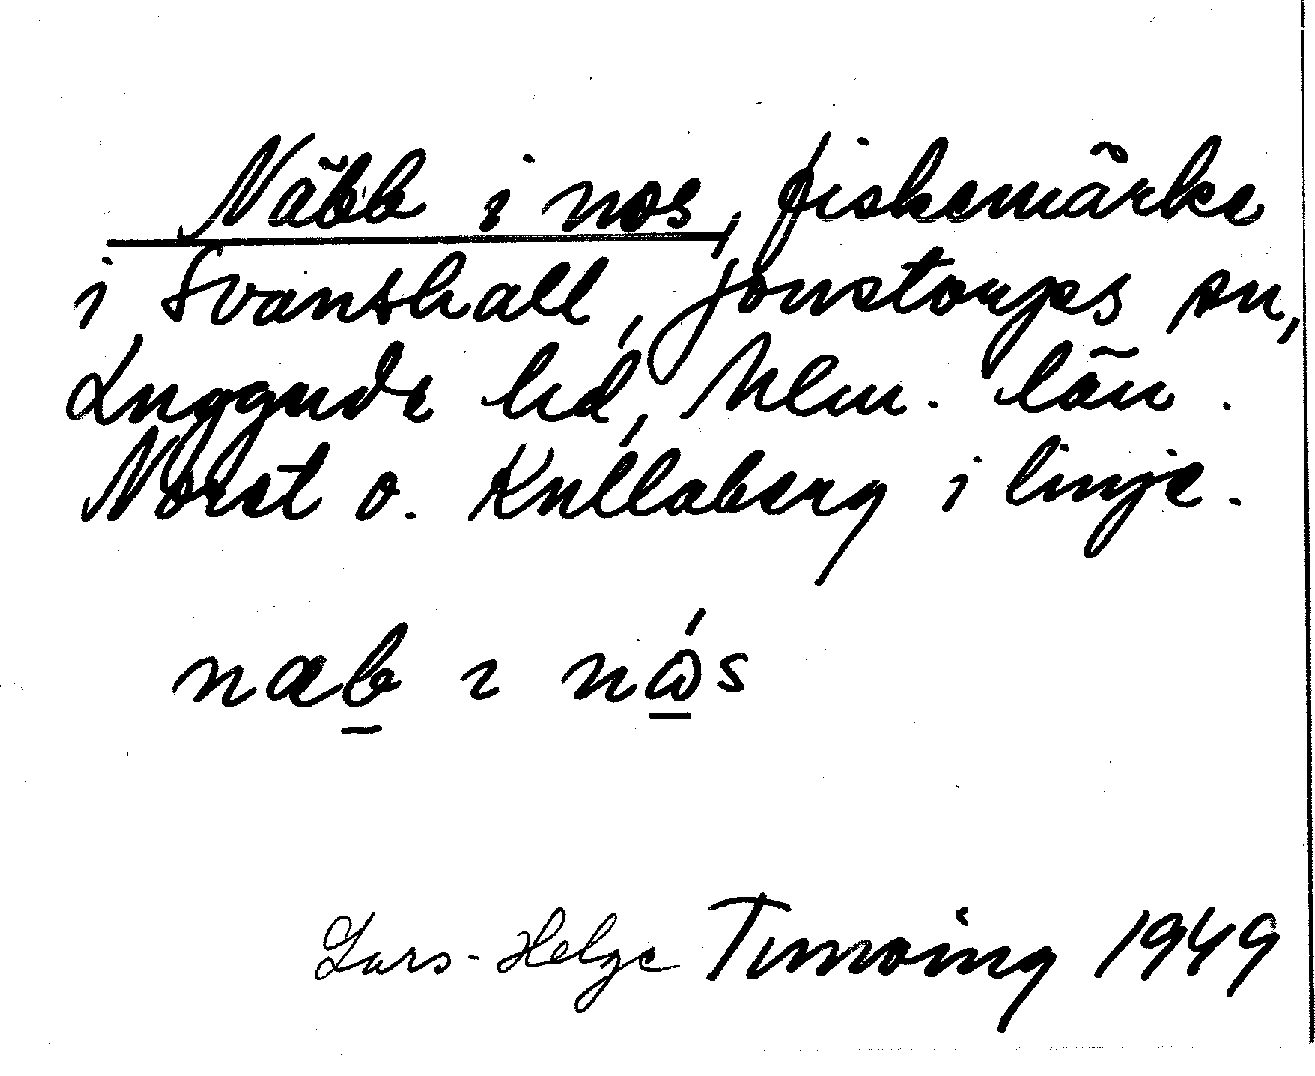 Näbb i nos, fiskemärke
i Svanshall, Jonstorps sn,
Luggude hd, Mlm. län.
Norst o. Kullaberg i linje.
næb ı nώs
Lars-Helge Tunving 1949